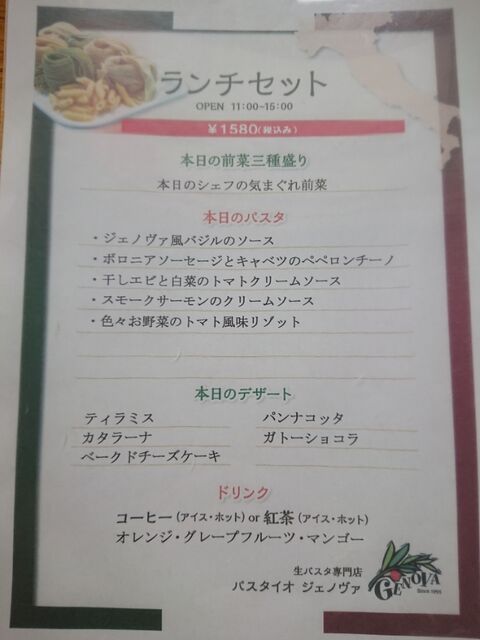 ランチセット
OPEN 11:00~15:00
¥1580(税込み)
本日の前菜三種盛り
本日のシェフの気まぐれ前菜
本日のパスタ
・ジェノヴァ風バジルのソース
・ボロニアソーセージとキャベツのペペロンチーノ
・干しエビと白菜のトマトクリームソース
・スモークサーモンのクリームソース
・色々お野菜のトマト風味リゾット
本日のデザート
ティラミス パンナコッタ
カタラーナ ガトーショコラ
ベークドチーズケーキ
ドリンク
コーヒー(アイス・ホット) or 紅茶(アイス・ホット)
オレンジ・グレープフルーツ・マンゴー
生パスタ専門店
パスタイオ ジェノヴァ
GENOVA
Since 1995